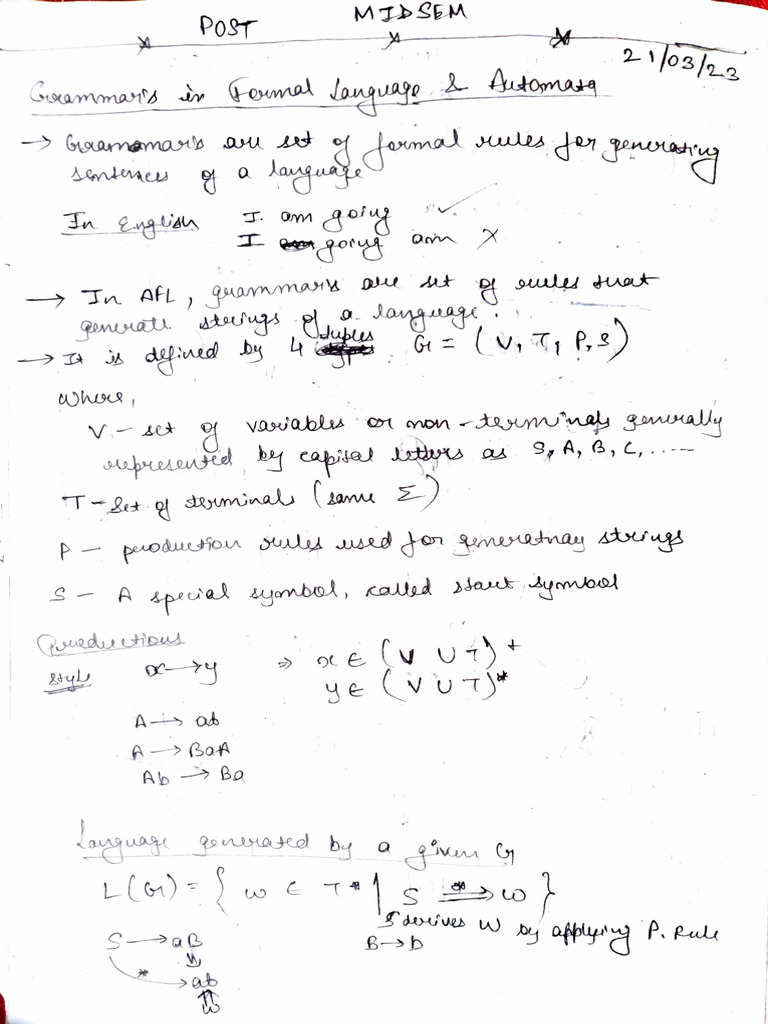 POST MIDSEM
21/03/23
Grammar's in Formal Language & Automata
→ Grammar's are set of formal rules for generating
sentences of a language
In English I am going ✓
I going am X
→ In AFL, grammar's are set of rules that
generate strings of a language.
→ It is defined by 4 tuples G = (V, T, P, S)
where,
V - set of variables or non-terminals generally
represented by capital letters as S, A, B, C, .....
T - Set of terminals (same Σ)
P - production rules used for generatnay strings
S - A special symbol, called start symbol
Productions
style x → y ⇒ x ∈ (V ∪ T)+
y ∈ (V ∪ T)*
A → ab
A → BaA
Ab → Ba
Language generated by a given G
L(G) = { w ∈ T* | S *⇒ w }
S derives w by applying P. Rule
S → aB B → b
* → ab
w